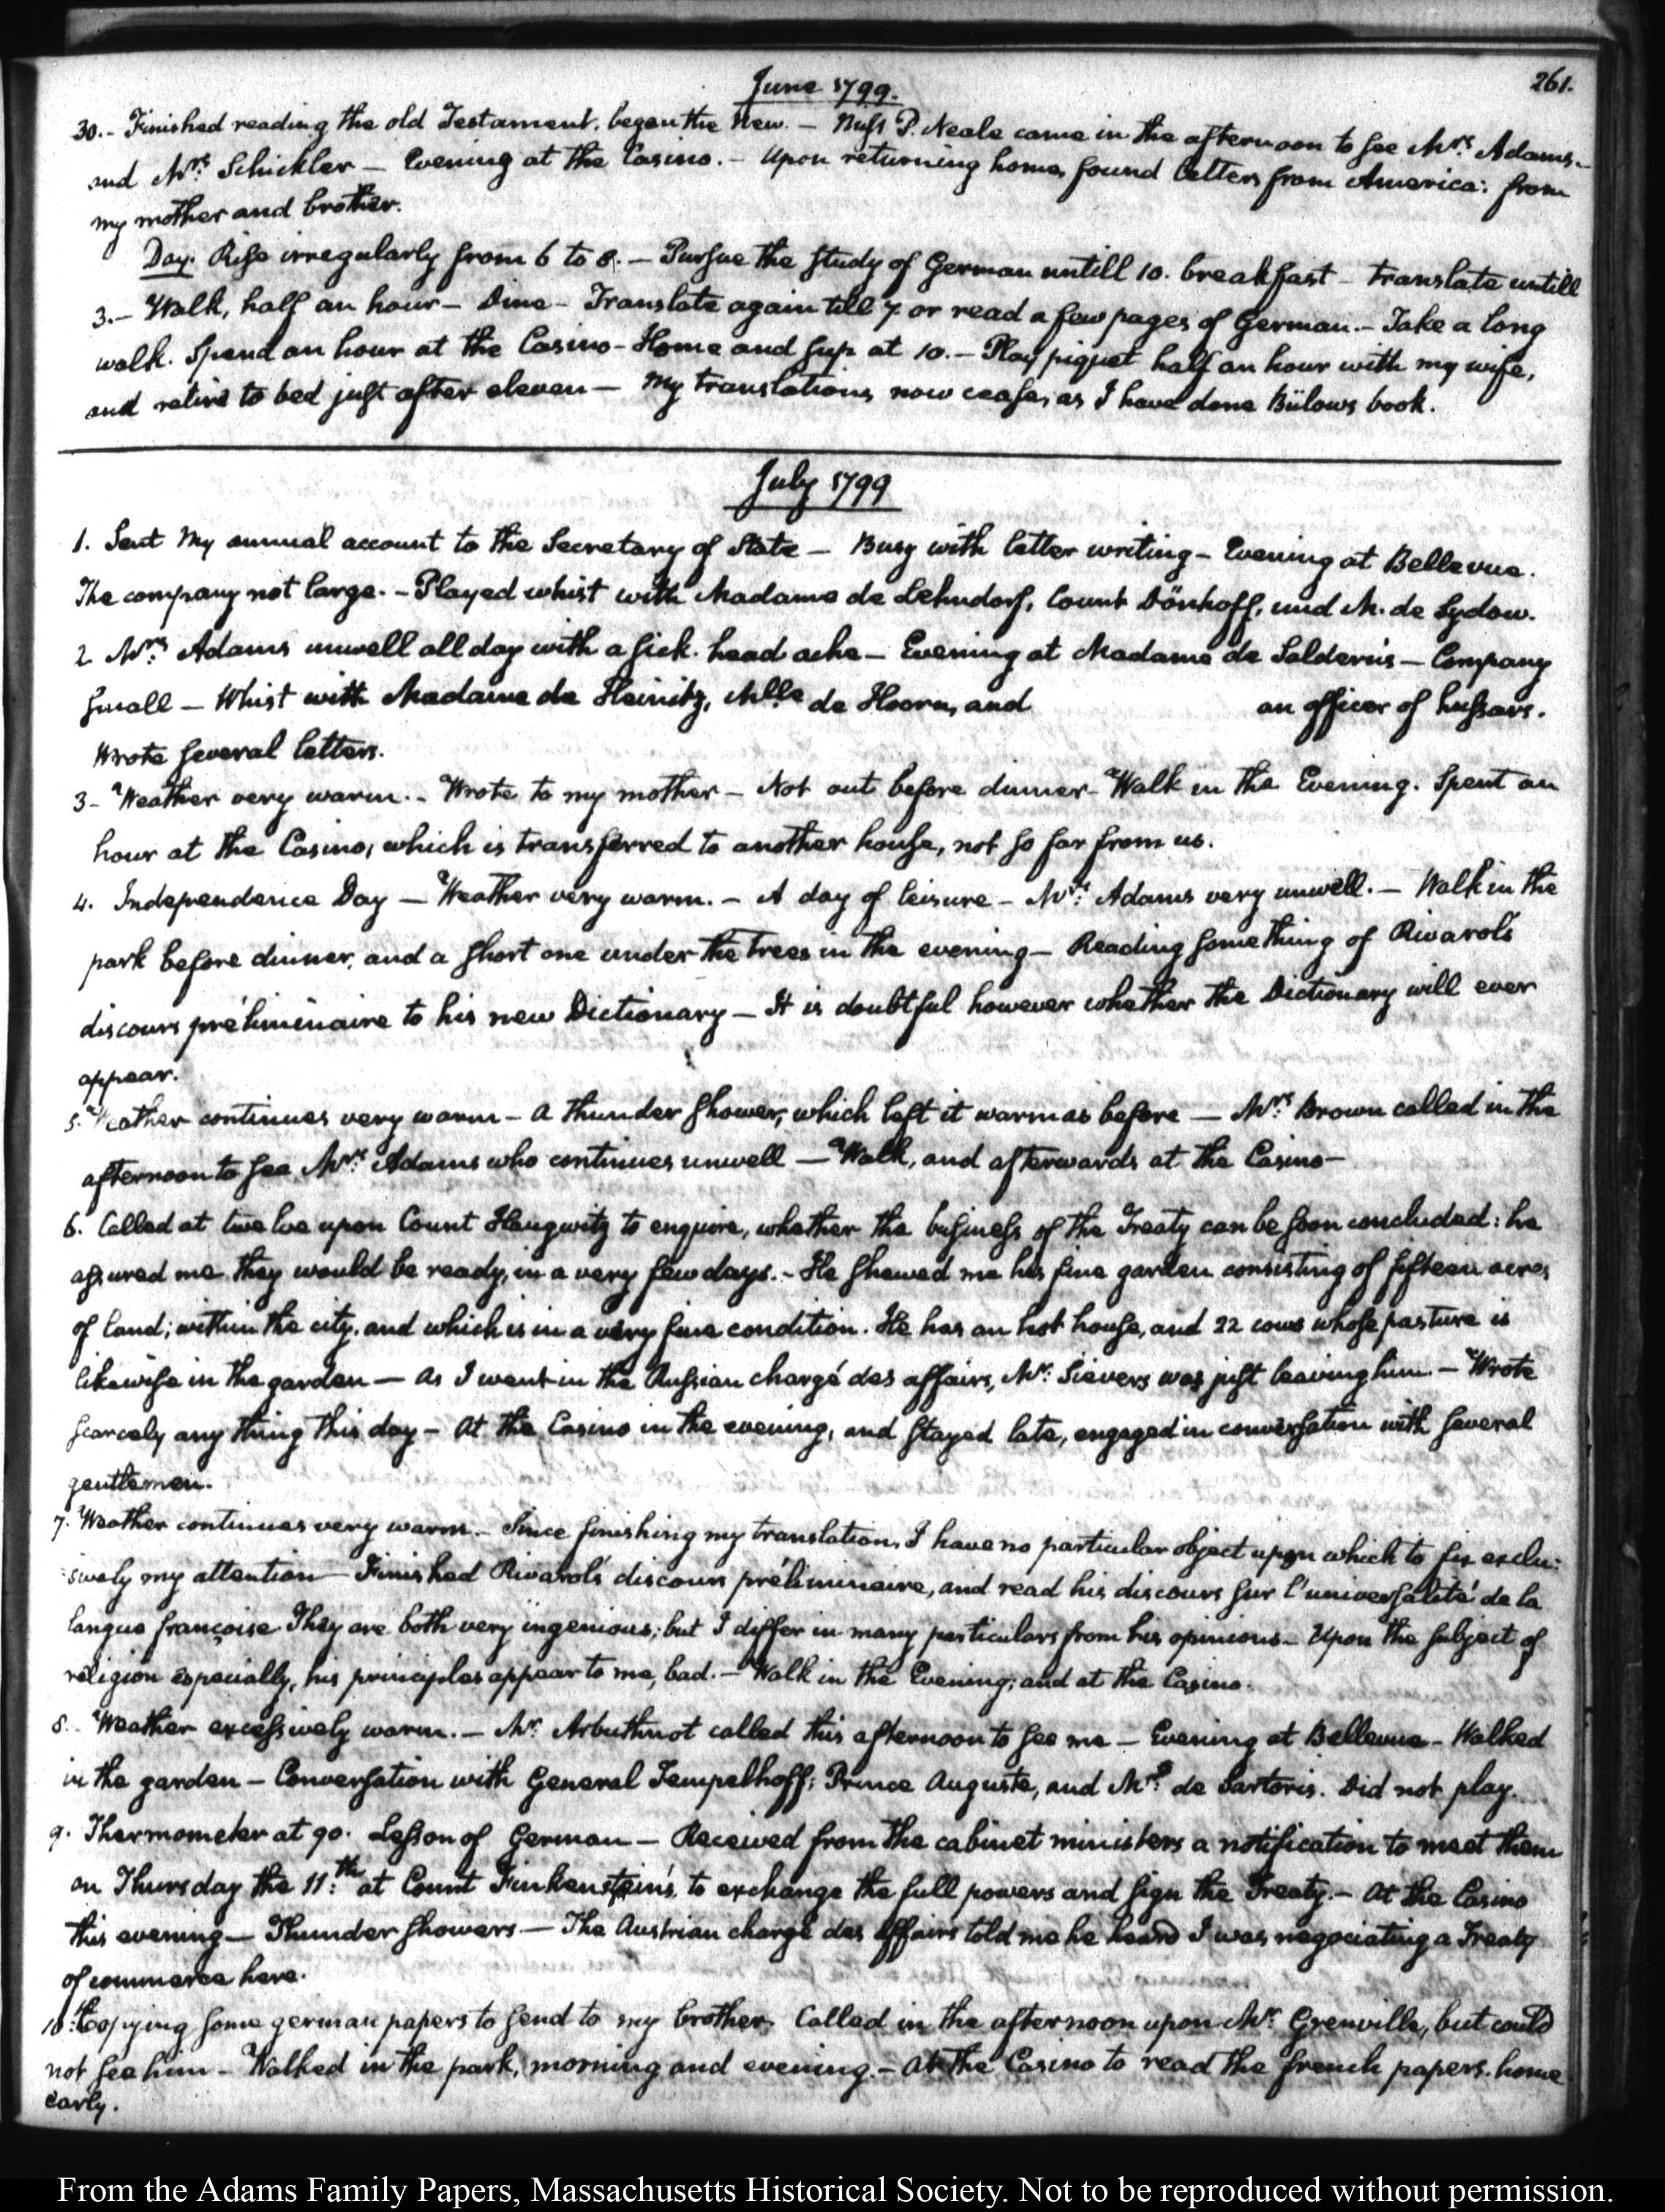 June 1799.
261.
30.- Finished reading the old Testament, began the New. — Miss P. Neale came in the afternoon to see Mrs: Adams.-
and Mrs: Schickler — Evening at the Casino. — Upon returning home, found letters from America: from
my mother and brother.
Day. Rise irregularly from 6 to 8. — Pursue the study of German untill 10. breakfast — translate untill
3. — Walk, half an hour — Dine — Translate again till 7 or read a few pages of German. — Take a long
walk. Spend an hour at the Casino — Home and sup at 10. — Play piquet half an hour with my wife,
and retire to bed just after eleven — My translations, now cease, as I have done Bülows book.
July 1799
1. Sent my annual account to the Secretary of State — Busy with letter writing — Evening at Bellevue.
The company not large. — Played whist with Madame de Lehndorf, Count Dönhoff, and M. de Sydow.
2 Mrs: Adams unwell all day with a sick head ache — Evening at Madame de Solderns — Company
small — Whist with Madame de Heinitz, Mlle de Hoorn, and an officer of hussars.
Wrote several letters.
3 - Weather very warm. - Wrote to my mother — Not out before dinner - Walk in the Evening. Spent an
hour at the Casino, which is transferred to another house, not so far from us.
4. Independence Day — Weather very warm. — A day of leisure — Mrs: Adams very unwell. — Walk in the
park before dinner, and a short one under the trees in the evening — Reading something of Rivarol's
discours préliminaire to his new Dictionary — It is doubtful however whether the Dictionary will ever
appear.
5. Weather continues very warm — a thunder shower, which left it warm as before — Mrs: Brown called in the
afternoon to see Mrs: Adams who continues unwell — Walk, and afterwards at the Casino —
6. Called at twelve upon Count Haugwitz to enquire, whether the business of the Treaty can be soon concluded: he
assured me they would be ready, in a very few days. — He shewed me his fine garden consisting of fifteen acres
of land; within the city, and which is in a very fine condition. He has an hot house, and 22 cows whose pasture is
likewise in the garden — As I went in the Russian chargé des affairs, Mr: Sievers was just leaving him — Wrote
scarcely any thing this day — At the Casino in the evening, and stayed late, engaged in conversation with several
gentlemen.
7. Weather continues very warm. — Since finishing my translation, I have no particular object upon which to fix exclu:
:sively my attention — Finished Rivarol's discours préliminaire, and read his discours sur l'universalité de la
langue françoise They are both very ingenious; but I differ in many particulars from his opinions — Upon the subject of
religion especially, his principles appear to me, bad. — Walk in the Evening; and at the Casino.
8. Weather excessively warm. — Mr: Arbuthnot called this afternoon to see me — Evening at Bellevue — Walked
in the garden — Conversation with General Tempelhoff; Prince Auguste, and de Sartoris. Did not play.
9. Thermometer at 90. Lesson of German — Received from the cabinet ministers a notification to meet them
on Thursday the 11:th at Count Finkenstein's, to exchange the full powers and sign the Treaty. — At the Casino
this evening — Thunder showers — The Austrian chargé des affairs told me he heard I was negociating a Treaty
of commerce here.
10: Copying some german papers to send to my brother. Called in the afternoon upon Mr: Grenville, but could
not see him — Walked in the park, morning and evening. — At the Casino to read the french papers. home
early.
From the Adams Family Papers, Massachusetts Historical Society. Not to be reproduced without permission.